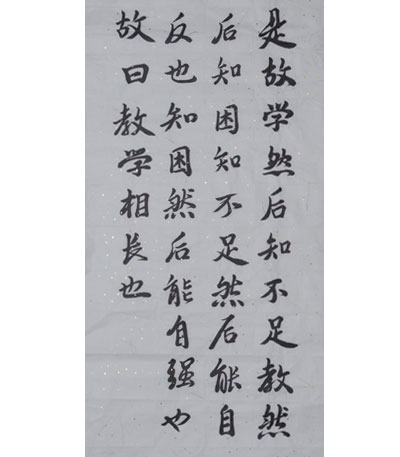 是故学然后知不足教然
后知困知不足然后能自
反也知困然后能自强也
故曰教学相长也